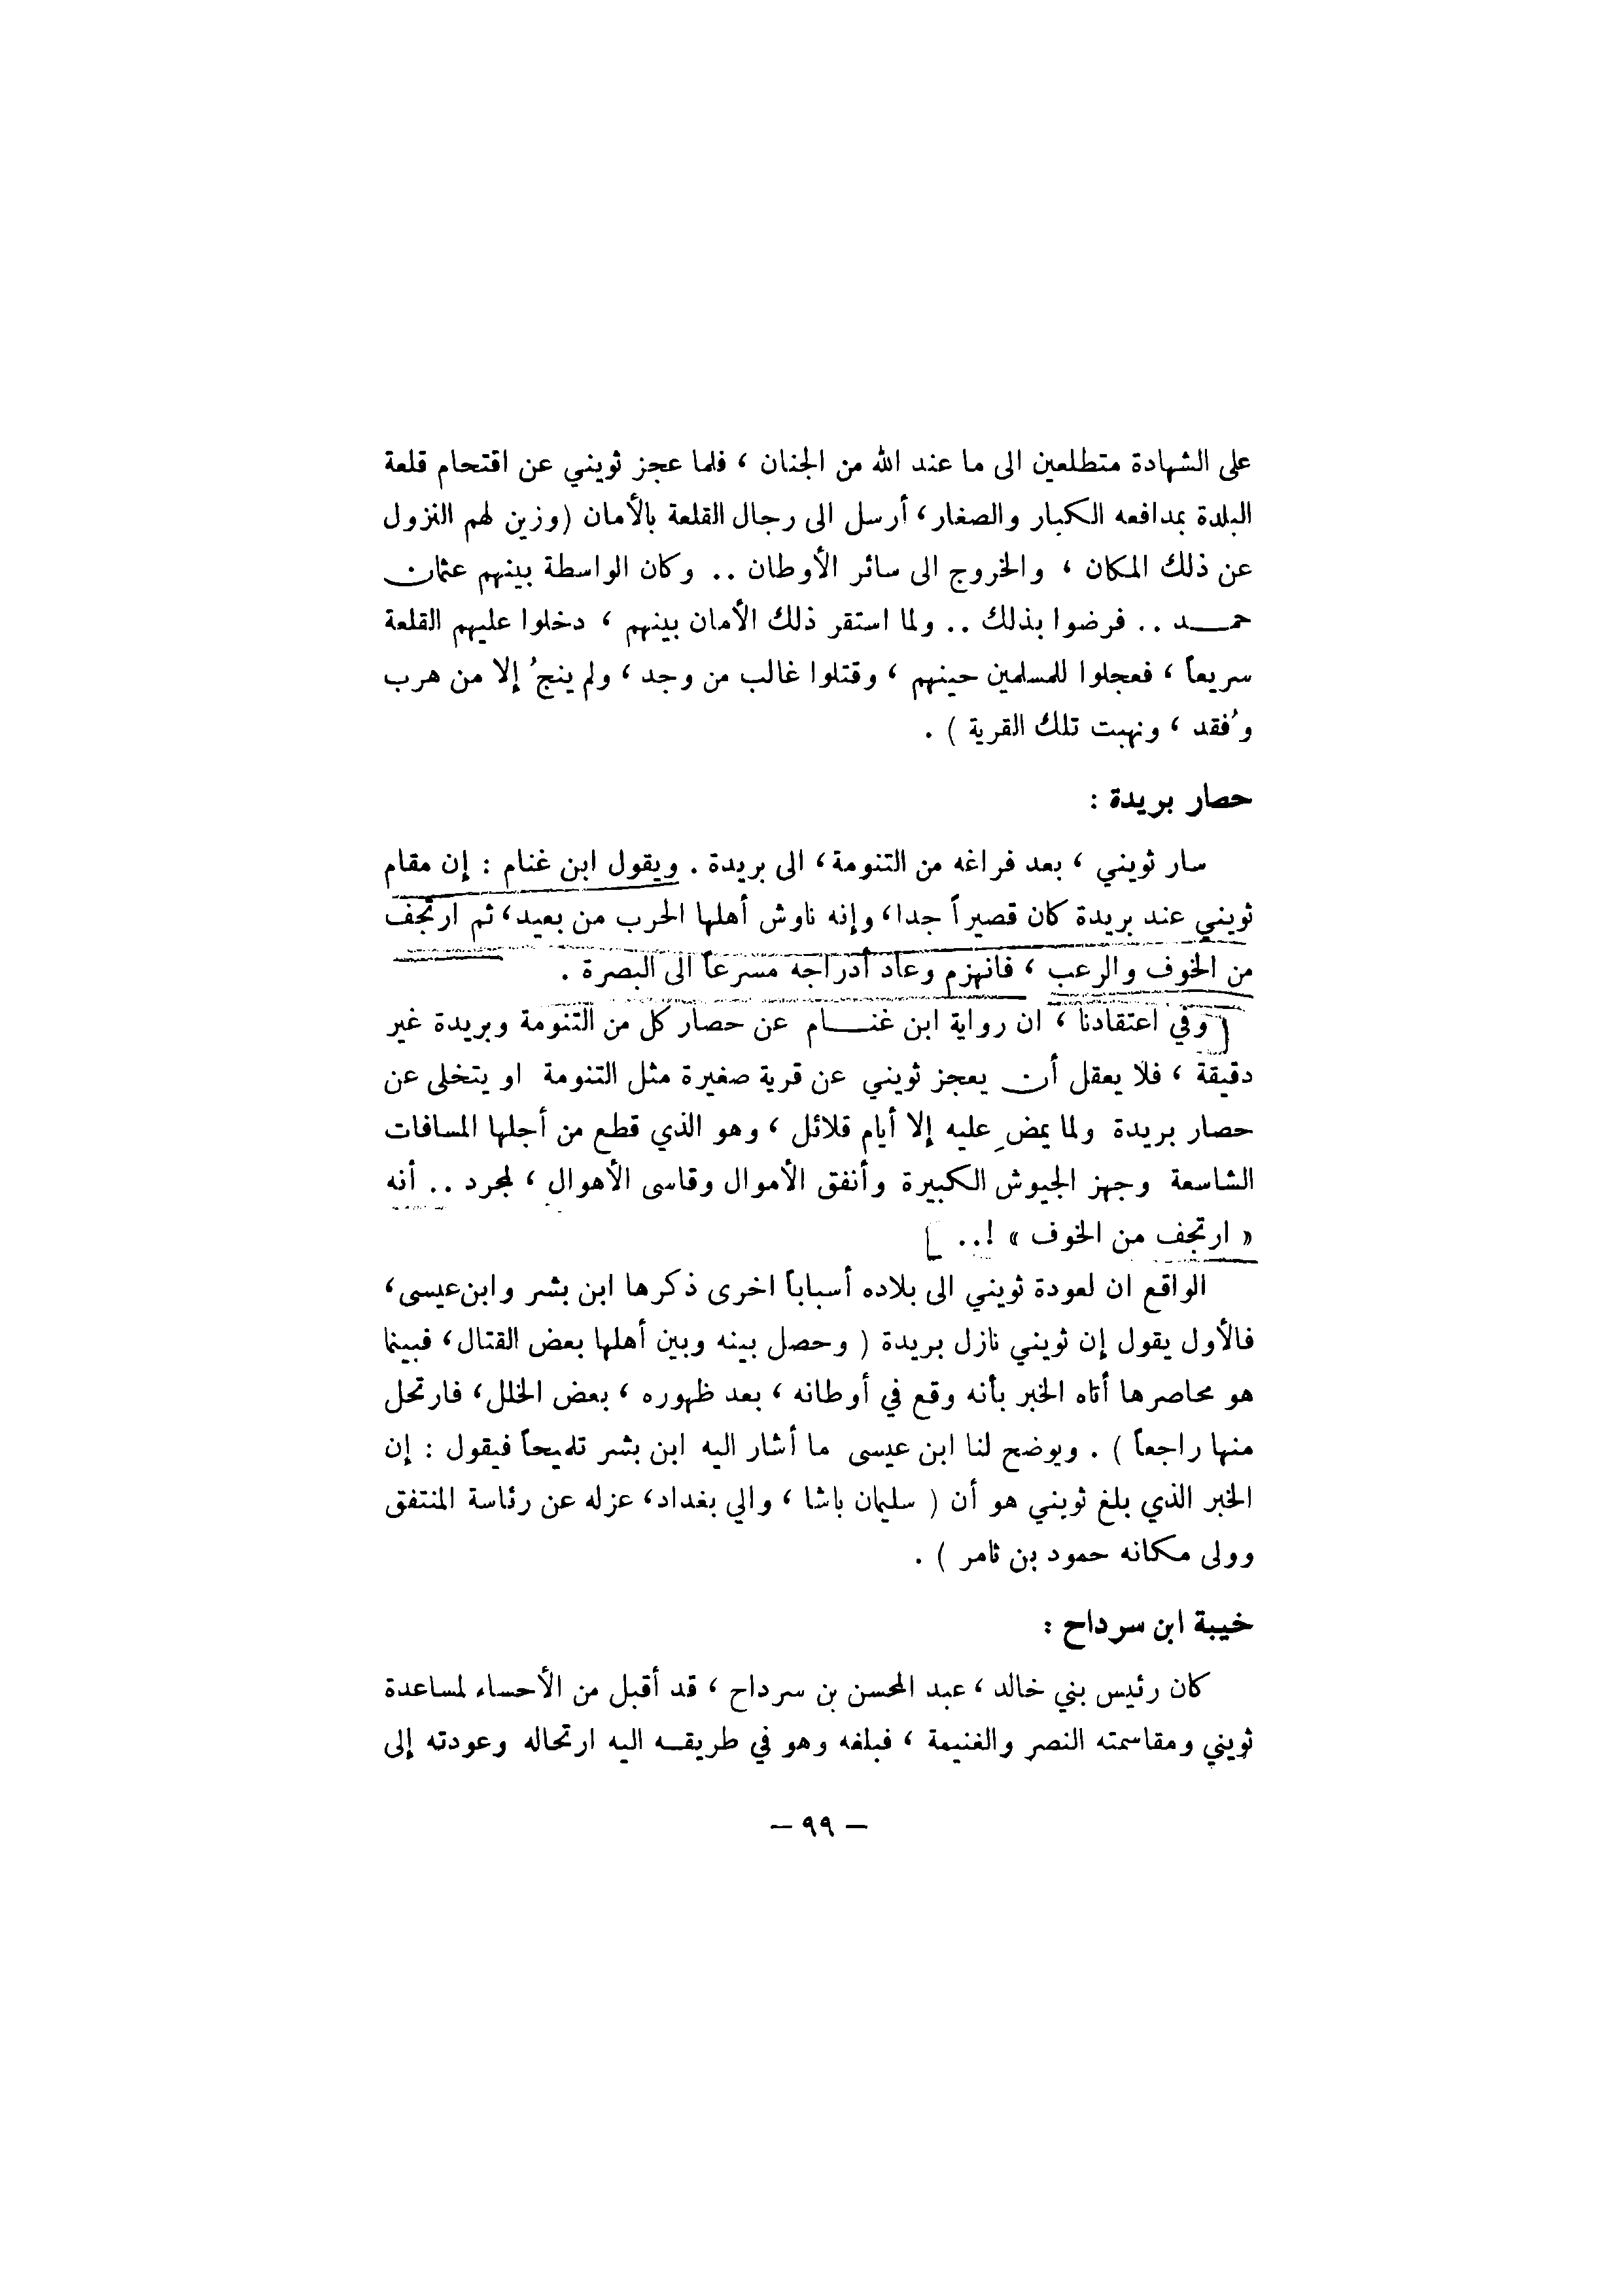 على الشهادة متطلعين الى ما عند الله من الجنان ، فلما عجز ثويني عن اقتحام قلعة
البلدة بمدافعه الكبار والصغار، أرسل الى رجال القلعة بالأمان (وزين لهم النزول
عن ذلك المكان ، والخروج الى سائر الأوطان .. وكان الواسطة بينهم عثمان
حمد .. فرضوا بذلك .. ولما استقر ذلك الأمان بينهم ، دخلوا عليهم القلعة
سريعاً ، فعجلوا للمسلمين حينهم ، وقتلوا غالب من وجد ، ولم ينجُ إلا من هرب
وفُقد ، ونهبت تلك القرية ) .
حصار بريدة :
سار ثويني ، بعد فراغه من التنومة، الى بريدة . ويقول ابن غنام : إن مقام
ثويني عند بريدة كان قصيراً جدا، وإنه ناوش أهلها الحرب من بعيد، ثم ارتجف
من الخوف والرعب ، فانهزم وعاد أدراجه مسرعاً الى البصرة .
[ وفي اعتقادنا ، ان رواية ابن غنام عن حصار كل من التنومة وبريدة غير
دقيقة ، فلا يعقل أن يعجز ثويني عن قرية صغيرة مثل التنومة او يتخلى عن
حصار بريدة ولما يمضِ عليه إلا أيام قلائل ، وهو الذي قطع من أجلها المسافات
الشاسعة وجهز الجيوش الكبيرة وأنفق الأموال وقاسى الأهوال ، لمجرد .. أنه
« ارتجف من الخوف » !.. ]
الواقع ان لعودة ثويني الى بلاده أسباباً اخرى ذكرها ابن بشر وابن عيسى،
فالأول يقول إن ثويني نازل بريدة ( وحصل بينه وبين أهلها بعض القتال، فبينما
هو محاصرها أتاه الخبر بأنه وقع في أوطانه ، بعد ظهوره ، بعض الخلل، فارتحل
منها راجعاً ) . ويوضح لنا ابن عيسى ما أشار اليه ابن بشر تلميحاً فيقول : إن
الخبر الذي بلغ ثويني هو أن ( سليمان باشا ، والي بغداد، عزله عن رئاسة المنتفق
وولى مكانه حمود بن ثامر ) .
خيبة ابن سرداح :
كان رئيس بني خالد ، عبد المحسن بن سرداح ، قد أقبل من الأحساء لمساعدة
ثويني ومقاسمته النصر والغنيمة ، فبلغه وهو في طريقه اليه ارتحاله وعودته إلى
— ٩٩ —